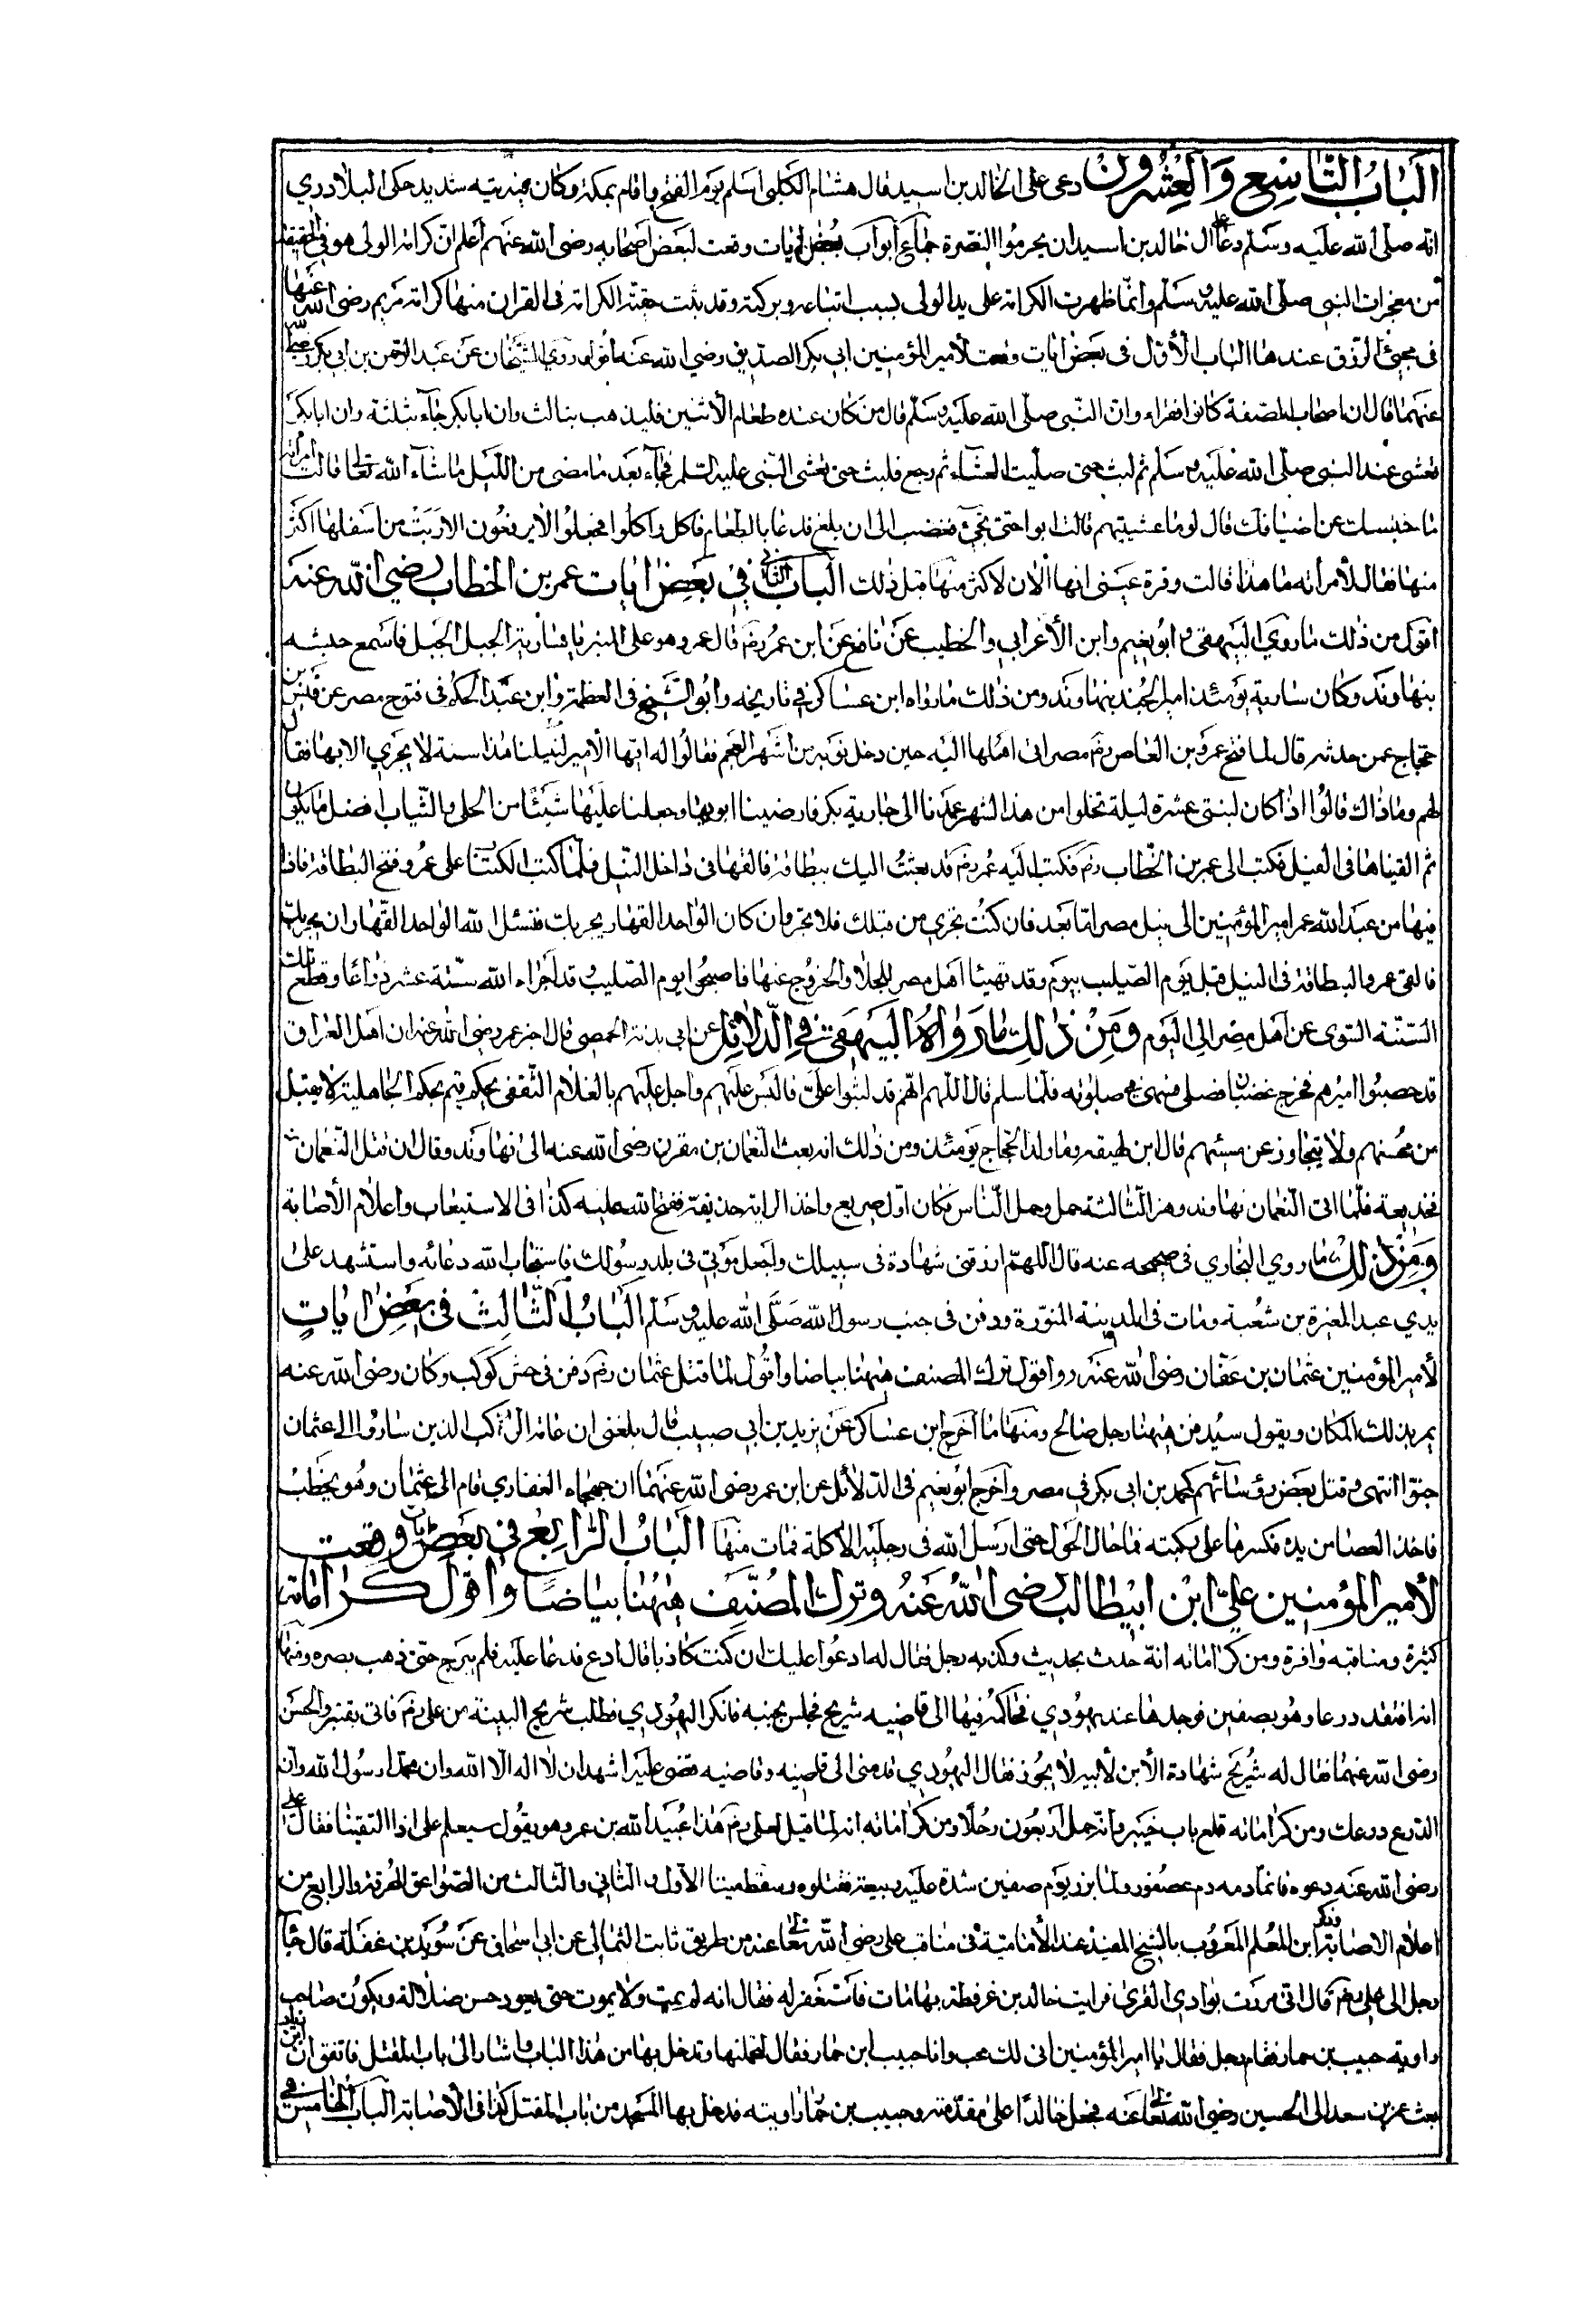 الباب التاسع والعشرون دعى على الخالد بن اسيد قال هشام الكلبى اسلم يوم الفتح واقام بمكة وكان فيه تيه شديد حكى البلاذري
انه صلى الله عليه وسلم دعا على ال خالد بن اسيد ان يحرموا النصرة جماع أبواب بعض ايات وقعت لبعض اصحابه رضى الله عنهم أعلم ان كرامة الولى هو في الحقيقة
من معجزات النبى صلى الله عليه وسلم وانما ظهرت الكرامة على يد الولى بسبب اتباعه وبركته وقد ثبت حقية الكرامة فى القران منها كرامة مريم رضى الله عنها
فى مجئ الرزق عندها الباب الأول فى بعض ايات وقعت لأمير المؤمنين ابى بكر الصديق رضي الله عنه أقول روي الشيخان عن عبد الرحمن بن ابى بكر رضي الله
عنهما قال ان اصحاب الصفة كانوا فقراء وان النبى صلى الله عليه وسلم قال من كان عنده طعام الاثنين فليذهب بثالث وان ابا بكر جاء بثلثة وان ابا بكر
تعشى عند النبى صلى الله عليه وسلم ثم لبث حتى صليت العشاء ثم رجع فلبث حتى تعشى النبى عليه السلم فجاء بعد ما مضى من الليل ما شاء الله تعالى قالت امرأته
ما حبست عن اضيافك قال لو ما عشيتيهم قالت ابوا حتى تجئ فغضب الى ان بلغ فدعا بالطعام فاكل واكلوا فجعلوا لا يرفعون الا ربت من اسفلها اكثر
منها فقال لأمرأته ما هذا قالت وقرة عينى انها ألان لاكثر منها قبل ذلك الباب الثانى في بعض ايات عمر بن الخطاب رضي الله عنه
اقول من ذلك ما روي البيهقي وابو نعيم وابن الأعرابي والخطيب عن نافع عن ابن عمر رض قال عمر وهو على المنبر يا سارية الجبل الجبل فاسمع جيشه
بنهاوند وكان سارية يومئذ امير الجند بنهاوند ومن ذلك ما رواه ابن عساكر في تاريخه وابو الشيخ فى العظمة وابن عبد الحكم فى فتوح مصر عن قيس بن
حجاج عمن حدثه قال لما فتح عمرو بن العاص رض مصر اتى اهلها اليه حين دخل بونه من اشهر العجم فقالوا له ايها الأمير لنيلنا هذا سنة لا يجري الا بها فقال
لهم وما ذاك قالوا اذا كان لثنتى عشرة ليلة تخلوا من هذا الشهر عمدنا الى جارية بكر فارضينا ابويها وجعلنا عليها شيئا من الحلى والثياب افضل ما يكون
ثم القيناها فى النيل فكتب الى عمر بن الخطاب رض فكتب اليه عمر رض قد بعثت اليك ببطاقة فالقها فى داخل النيل فلما كتب الكتاب على عمرو فتح البطاقة فاذا
فيها من عبد الله عمر امير المؤمنين الى نيل مصر اما بعد فان كنت تجري من قبلك فلا تجر وان كان الواحد القهار يجريك فنسئل الله الواحد القهار ان يجريك
فالقى عمرو البطاقة فى النيل قبل يوم الصليب بيوم وقد تهيئا اهل مصر للجلاء والخروج عنها فاصبحوا يوم الصليب وقد أجراه الله ستة عشر ذراعا وقطع تلك
السنة السوى عن اهل مصر الى اليوم ومن ذلك ما رواه البيهقي في الدلائل عن ابي بدنة الحمصى قال اخبر عمر رضى الله عنه ان اهل العراق
قد حصبوا اميرهم فخرج غضبان فصلى فسهى فى صلوته فلما سلم قال اللهم انهم قد لبثوا على فالبس عليهم واجل عليهم بالغلام الثقفى يحكم فيهم بحكم الجاهلية لا يقبل
من محسنهم ولا يتجاوز عن مسيئهم قال ابن لهيعه وما ولد الحجاج يومئذ ومن ذلك انه بعث النعمان بن مقرن رضى الله عنه الى نهاوند وقال ان قتل النعمان
فحذيفة فلما اتى النعمان نهاوند وهز الثالثة حمل وحمل الناس فكان اول صريع واخذ الراية حذيفة ففتح الله عليه كذا فى الاستيعاب واعلام الأصابة
ومن ذلك ما روي البخاري فى صحيحه عنه قال اللهم ارزقنى شهادة فى سبيلك واجعل موتي فى بلد رسولك فاستجاب الله دعائه واستشهد على
يدي عبد المغيرة بن شعبة ومات فى المدينة المنورة ودفن فى جنب رسول الله صلى الله عليه وسلم الباب الثالث فى بعض ايات
لأمير المؤمنين عثمان بن عفان رضى الله عنه واقول ترك المصنف ههنا بياضا واقول لما قتل عثمان رض دفن فى حش كوكب وكان رضى الله عنه
يمر بذلك المكان ويقول سيدفن ههنا رجل صالح ومنها ما أخرج ابن عساكر عن يزيد بن ابي حبيب قال بلغنى ان عامة الركب الذين ساروا الى عثمان
جنوا انتهى وقتل بعض رؤسائهم كمحمد بن ابى بكر في مصر واخرج ابو نعيم فى الدلائل عن ابن عمر رضى الله عنهما ان جهجاه الغفاري قام الى عثمان وهو يخطب
فاخذ العصا من يده فكسرها على ركبته فما حال الحول حتى ارسل الله فى رجليه الأكلة فمات منها الباب الرابع فى بعض ايات وقعت
لأمير المؤمنين علي ابن ابيطالب رضى الله عنه وترك المصنف ههنا بياضا واقول كراماته
كثيرة ومناقبه وافرة ومن كراماته انه حدث بحديث وكذبه رجل فقال له ادعوا عليك ان كنت كاذبا قال ادع فدعا عليه فلم يبرح حتى ذهب بصره ومنها
انه افتقد درعا وهو بصفين فوجدها عند يهودي فحاكمه فيها الى قاضيه شريح فجلس بجنبه فانكر اليهودي فطلب شريح البينة من على رض فاتى بقنبر والحسن
رضى الله عنهما فقال له شريح شهادة الأبن لأبيه لا يجوز فقال اليهودي قدمنى الى قاضيه وقاضيه قضى عليه اشهد ان لا اله الا الله وان محمدا رسول الله وان
الدرع درعك ومن كراماته قلع باب خيبر وانه حمل اربعون رجلا ومن كراماته انه لما قيل لعلى رض هذا عبيد الله بن عمر وهو يقول سيعلم على اذا التقينا فقال على
رضى الله عنه دعوه فانما دمه دم عصفور ولما برز يوم صفين شدة عليه ربيعة فقتلوه وسقط ميتا الأول والثاني والثالث من الصواعق المحرقة والرابع من
اعلام الاصابة وذكر ابن المعلم المعروف بالشيخ المفيد عند الأمامية فى مناقب على رضي الله تعالى عنه من طريق ثابت الثمالى عن ابي اسحاق عن سويد بن غفلة قال جاء
رجل الى على رض قال انى مررت بوادي القرى فرايت خالد بن عرفطة بها مات فاستغفر له فقال انه لم يمت ولا يموت حتى يعود جيش ضلالة ويكون صاحب
راويه حبيب بن حمار فقام رجل فقال يا امير المؤمنين انى لك محب وانا حبيب ابن حمار فقال لتحملنها وتدخل بها من هذا الباب واشار الى باب المقتل فاتفق ان ابن زياد
بعث عمر بن سعد الى الحسين رضي الله تعالى عنه فجعل خالدا على مقدمته وحبيب بن حمار راويته فدخل بها المسجد من باب المقتل كذا فى الأصابة الباب الخامس في